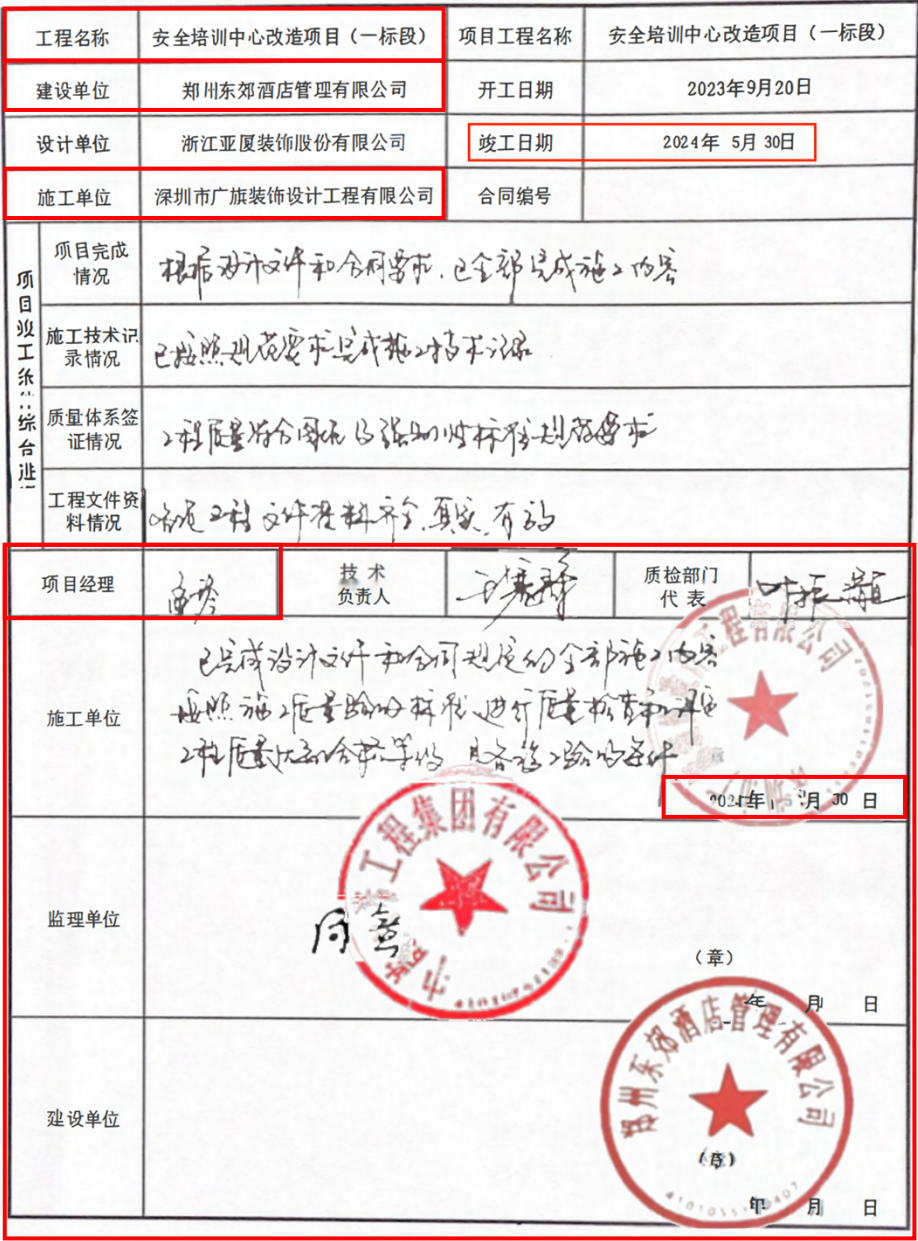 工程名称 安全培训中心改造项目（一标段） 项目工程名称 安全培训中心改造项目（一标段）
建设单位 郑州东郊酒店管理有限公司 开工日期 2023年9月20日
设计单位 浙江亚厦装饰股份有限公司 竣工日期 2024年 5月 30日
施工单位 深圳市广旗装饰设计工程有限公司 合同编号
项目竣工
综合
项目完成
情况
根据设计文件和合同要求，已全部完成施工内容
施工技术记
录情况
已按照规范要求完成施工技术记录
质量体系签
证情况
工程质量符合国标及强制性标准规范要求
工程文件资
料情况
工程文件资料齐全、真实、有效
项目经理
技 术
负责人
质检部门
代 表
叶振
施工单位
已完成设计文件和合同规定的全部施工内容
按照施工质量验收标准进行质量检查和评定
工程质量达到合格等级，具备竣工验收条件
工程有限公司
2024年 5月 30 日
监理单位
工程集团有限公司
同意
（章）
年 月 日
建设单位
郑州东郊酒店管理有限公司
（章）
年 月 日